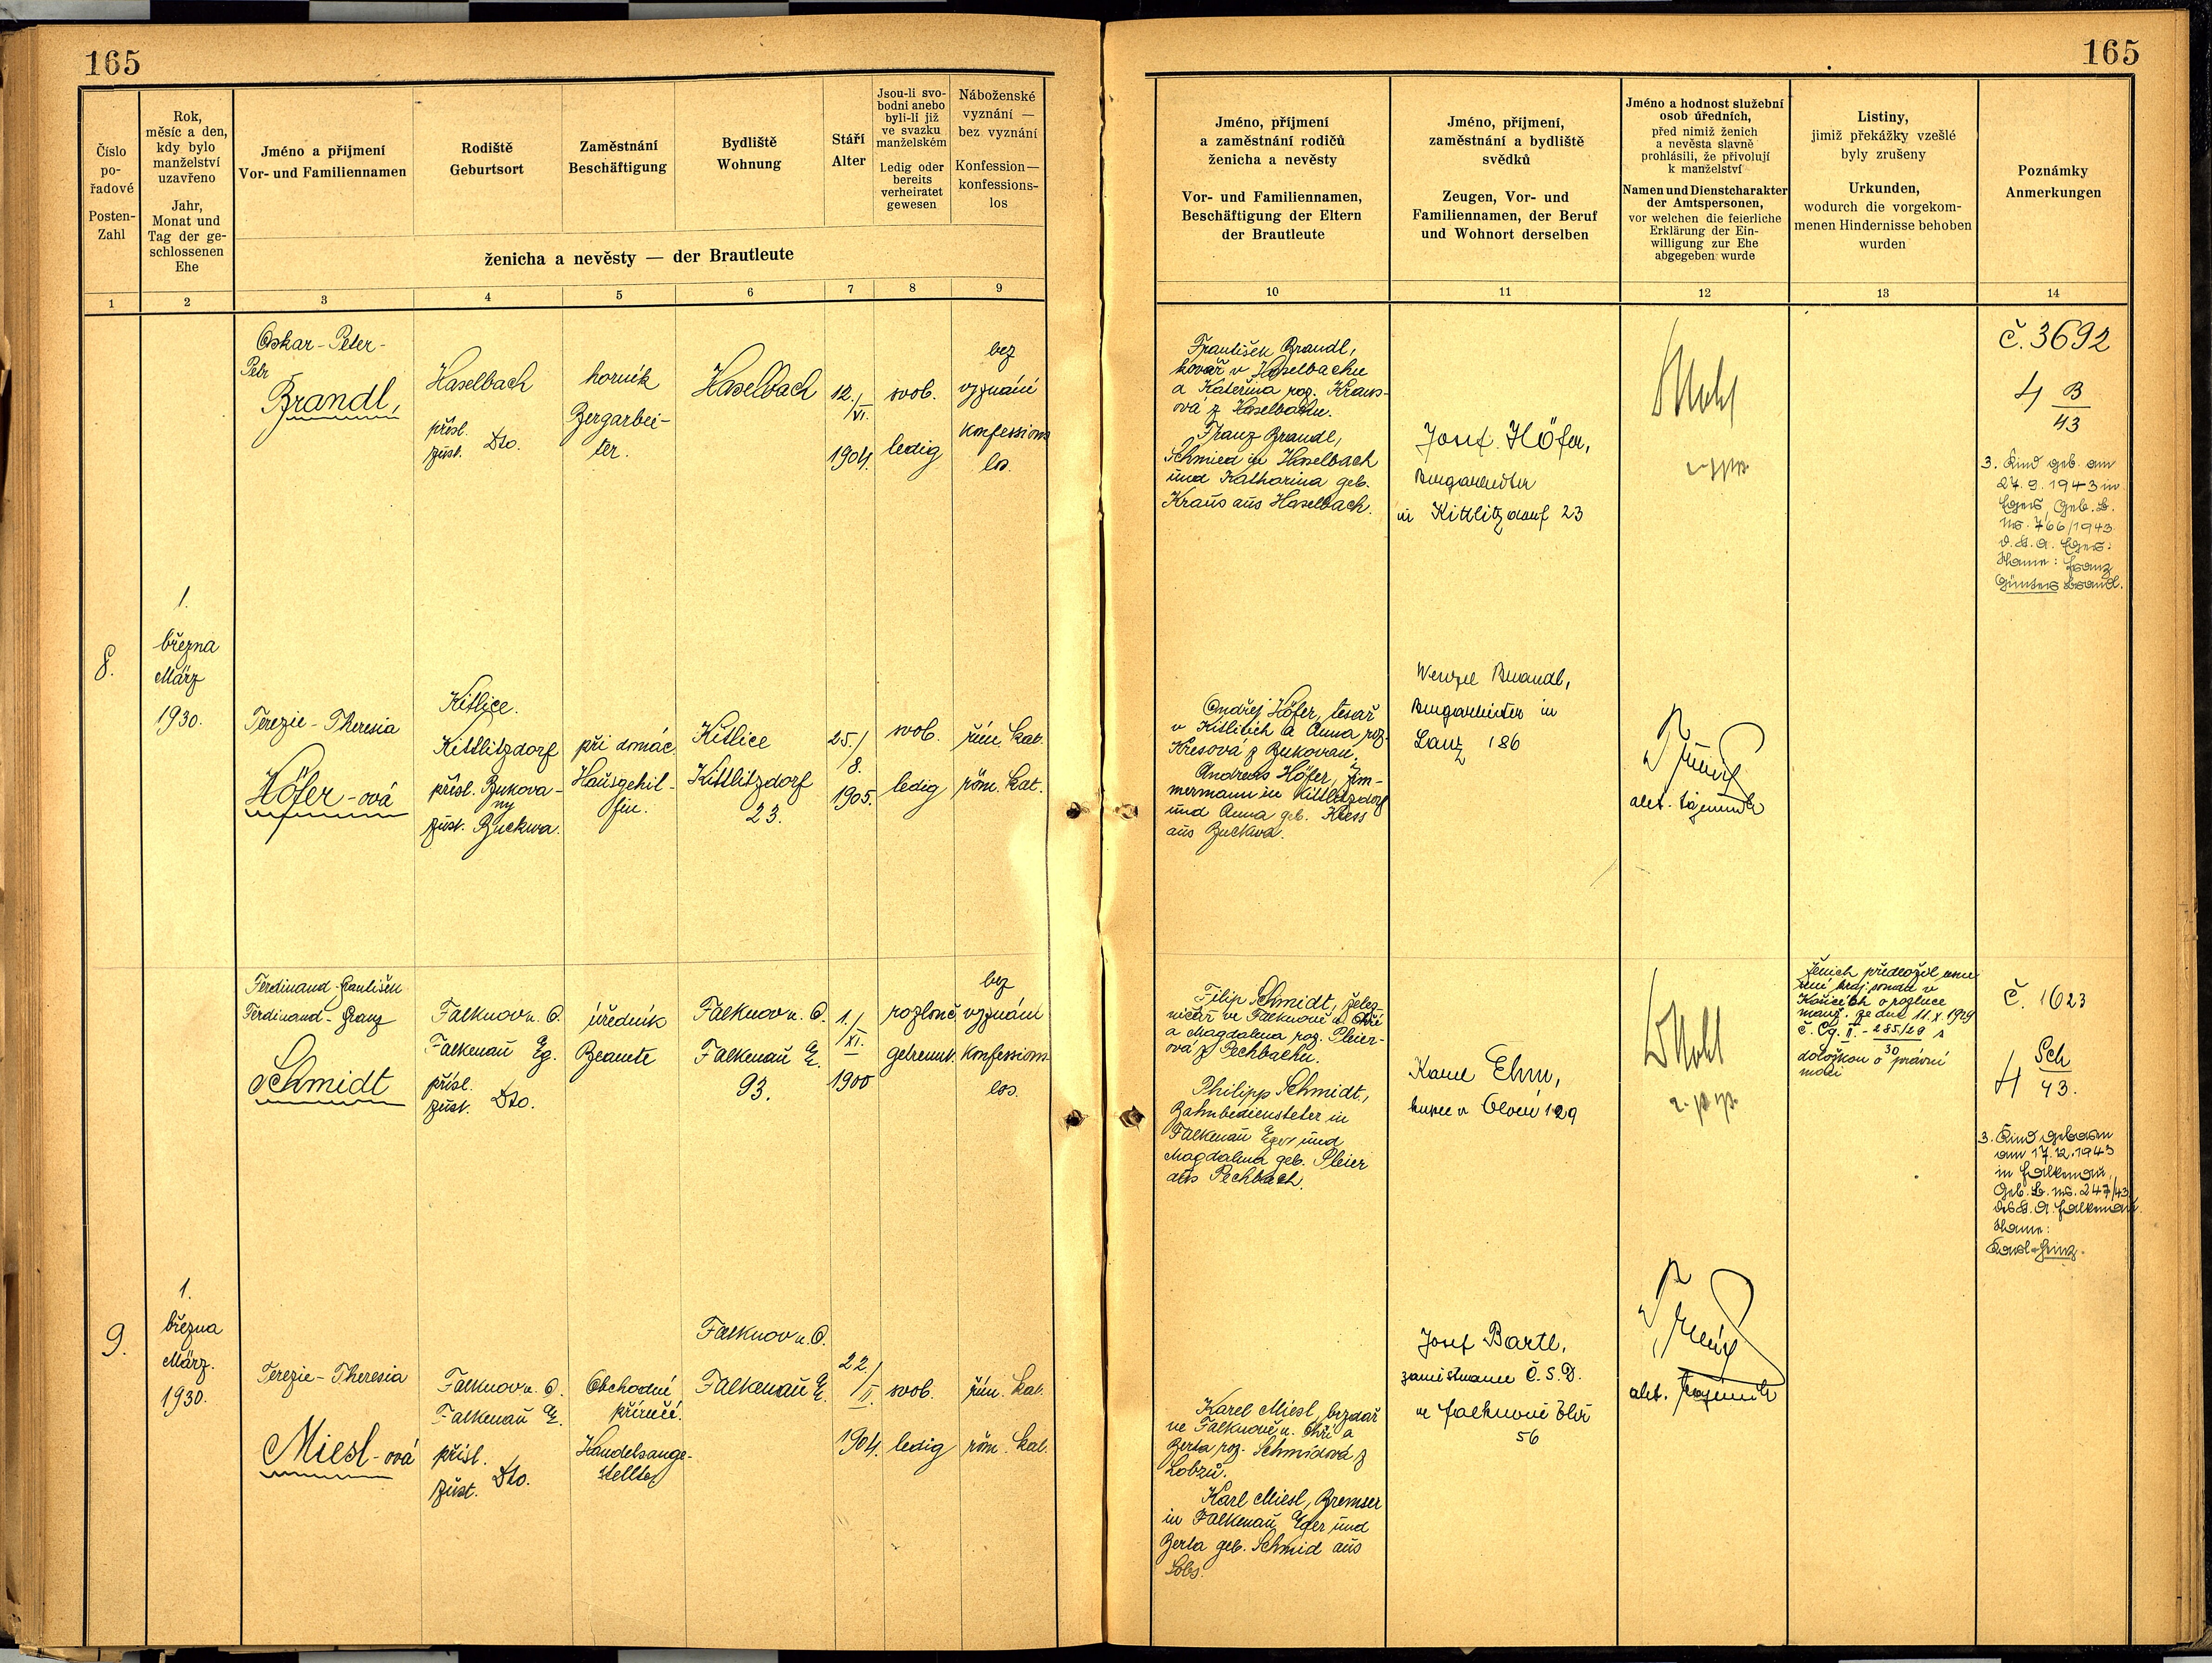 165
165
Číslo
po-
řadové
Posten-
Zahl
Rok,
měsíc a den,
kdy bylo
manželství
uzavřeno
Jahr,
Monat und
Tag der ge-
schlossenen
Ehe
Jméno a příjmení
Vor- und Familiennamen
Rodiště
Geburtsort
Zaměstnání
Beschäftigung
Bydliště
Wohnung
Stáří
Alter
Jsou-li svo-
bodni anebo
byli-li již
ve svazku
manželském
Ledig oder
bereits
verheiratet
gewesen
Náboženské
vyznání —
bez vyznání
Konfession—
konfessions-
los
ženicha a nevěsty — der Brautleute
Jméno, příjmení
a zaměstnání rodičů
ženicha a nevěsty
Vor- und Familiennamen,
Beschäftigung der Eltern
der Brautleute
Jméno, příjmení,
zaměstnání a bydliště
svědků
Zeugen, Vor- und
Familiennamen, der Beruf
und Wohnort derselben
Jméno a hodnost služební
osob úředních,
před nimiž ženich
a nevěsta slavně
prohlásili, že přivolují
k manželství
Namen und Dienstcharakter
der Amtspersonen,
vor welchen die feierliche
Erklärung der Ein-
willigung zur Ehe
abgegeben wurde
Listiny,
jimiž překážky vzešlé
byly zrušeny
Urkunden,
wodurch die vorgekom-
menen Hindernisse behoben
wurden
Poznámky
Anmerkungen
1 2 3 4 5 6 7 8 9 10 11 12 13 14
8.
1.
března
März
1930.
Oskar-Peter-
Petr
Brandl,
Haselbach
přísl.
zust. Dto.
horník
Bergarbei-
ter.
Haselbach
12./
VI.
1904.
svob.
ledig
bez
vyznání
konfessions
los.
František Brandl,
kovář v Haselbachu
a Kateřina roz. Kraus-
ová z Haselbachu.
Franz Brandl,
Schmied in Haselbach
und Katharina geb.
Kraus aus Haselbach.
Josef Höfer,
Bergarbeiter
in Kittlitzdorf 23
č. 3692
4 B
43
3. Kind geb. am
27.9.1943 in
Eger, Geb. B.
Nr. 766/1943
d. St. A. Eger:
Name: Franz
Günter Brandl.
Terezie-Theresia
Höfer-ová
Kitlice.
Kittlitzdorf
přísl. Bukova-
ny
zust. Buckwa.
při domác.
Hausgehil-
fin.
Kitlice
Kittlitzdorf
23.
25./
8.
1905.
svob.
ledig
řím. kat.
röm. kat.
Ondřej Höfer, tesař
v Kitlitích a Anna roz.
Kresová z Bukovan.
Andreas Höfer, Zim-
mermann in Kittlitzdorf
und Anna geb. Kress
aus Buckwa.
Wenzel Brandl,
Bergarbeiter in
Lanz 186
akt. tajemník
9.
1.
března
März.
1930.
Ferdinand-František
Ferdinand-Franz
Schmidt
Falknov n. O.
Falkenau Eg.
přísl.
zust. Dto.
úředník
Beamte
Falknov n. O.
Falkenau E.
93.
1./
XI.
1900
rozlouč.
getrennt.
bez
vyznání
konfessions
los.
Filip Schmidt, želez-
ničář ve Falknově n. Ohří
a Magdalena roz. Pleier-
ová z Pechbachu.
Philipp Schmidt,
Bahnbediensteter in
Falkenau Eger und
Magdalena geb. Pleier
aus Pechbach.
Karel Ehm,
kupec v 129
Ženich předložil usne
sení kraj. soudu v
o rozluce
manž. ze dne 11.X.1929
č. Cg. II.-285/29 s
30
doložkou o právní
moci
č. 1623
4 Sch
43.
3. Kind geboren
am 17.12.1943
in Falkenau,
Geb. B. Nr. 247/43
des St. A. Falkenau.
Name:
Karl-Heinz.
Terezie-Theresia
Miesl-ová
Falknov n. O.
Falkenau E.
přísl.
zust. Dto.
Obchodní
příručí.
Handelsange-
stellte
Falknov n. O.
Falkenau E.
22./
II.
1904.
svob.
ledig
řím. kat.
röm. kat.
Karel Miesl, brzdař
ve Falknově n. Ohří a
Berta roz. Schmidová z
Lobzů.
Karl Miesl, Bremser
in Falkenau Eger und
Berta geb. Schmid aus
Lobs.
Josef Bartl,
zaměstnanec Č.S.D.
ve Falknově
56
akt. tajemník